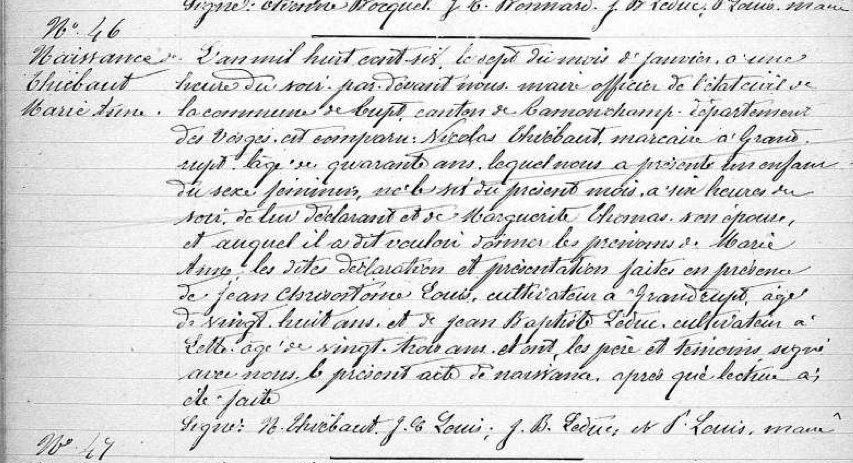 Signé: Etienne Bocquel. J. C. Bonnard. J. B. Leduc, P. Louis, maire
No. 46
Naissance de
Thiébaut
Marie Anne.
L'an mil huit cent six, le sept du mois de janvier, à une
heure du soir, par devant nous, maire officier de l'état civil de
la commune de Rupt, canton de Ramonchamp, département
des Vosges, est comparu: Nicolas Thiébaut, marcaire à Grand
rupt, âgé de quarante ans, lequel nous a présenté un enfant
du sexe féminin, né le six du présent mois, à six heures du
soir, de lui déclarant et de Marguerite Thomas, son épouse,
et auquel il a dit vouloir donner les prénoms de Marie
Anne, les dites déclaration et présentation faites en présence
de Jean Chrisostome Louis, cultivateur à Grandrupt, âgé
de vingt huit ans, et de Jean Baptiste Leduc, cultivateur à
Lette, âgé de vingt trois ans, et ont, les père et témoins signé
avec nous le présent acte de naissance, après que lecture a
été faite
Signé: N. Thiébaut, J. C. Louis, J. B. Leduc, et P. Louis, maire
No. 47